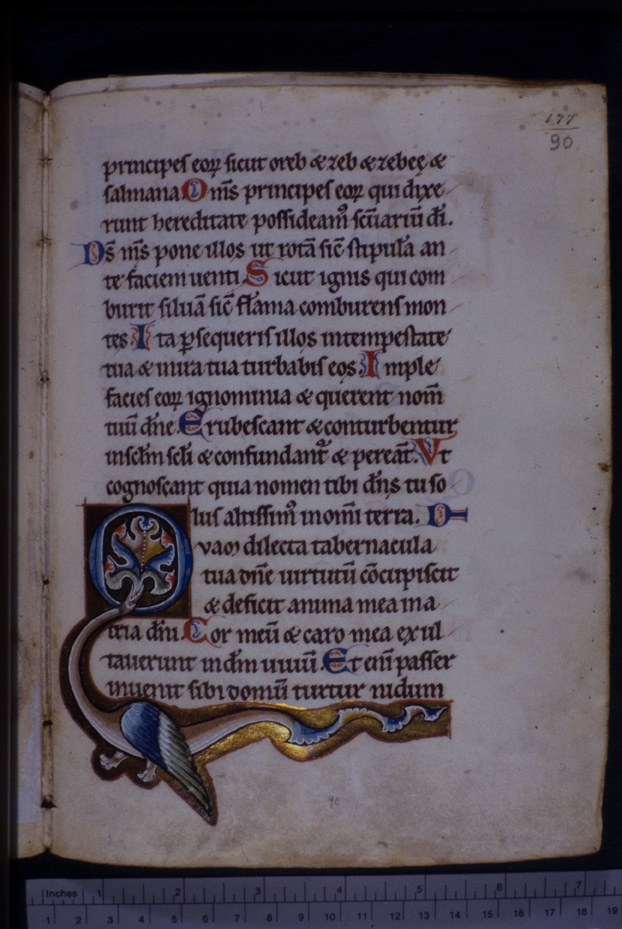 177
90
principes eoꝝ sicut oreb & zeb & zebeę &
salmana. Om̄s principes eoꝝ qui dixe
runt hereditate possideam᷒ sc̄uariū dī.
Ds̄ ms̄ pone illos ut rotā sic̄ stipulā an
te faciem uenti. Sicut ignis qui com
burit siluā sic̄ flāma comburens mon
tes. Ita ꝑsequeris illos intempestate
tua & in ira tua turbabis eos. Imple
facies eoꝝ ignominia & querent nom̄
tuū dn̄e. Erubescant & conturbentur
insc̄lm scl̄i & confundant᷑ & pereāt. Vt
cognoscant quia nomen tibi dn̄s tu so
lus altissim᷒ in om̄i terra.
Quam dilecta tabernacula
tua dn̄e uirtutū cōcupiscit
& deficit anima mea in a
tria dn̄i. Cor meū & caro mea exul
tauerunt in dm̄ uiuū. Et eni᷒ passer
inuenit sibi domū turtur nidum
90
Inches 1 2 3 4 5 6 7
1 2 3 4 5 6 7 8 9 10 11 12 13 14 15 16 17 18 19